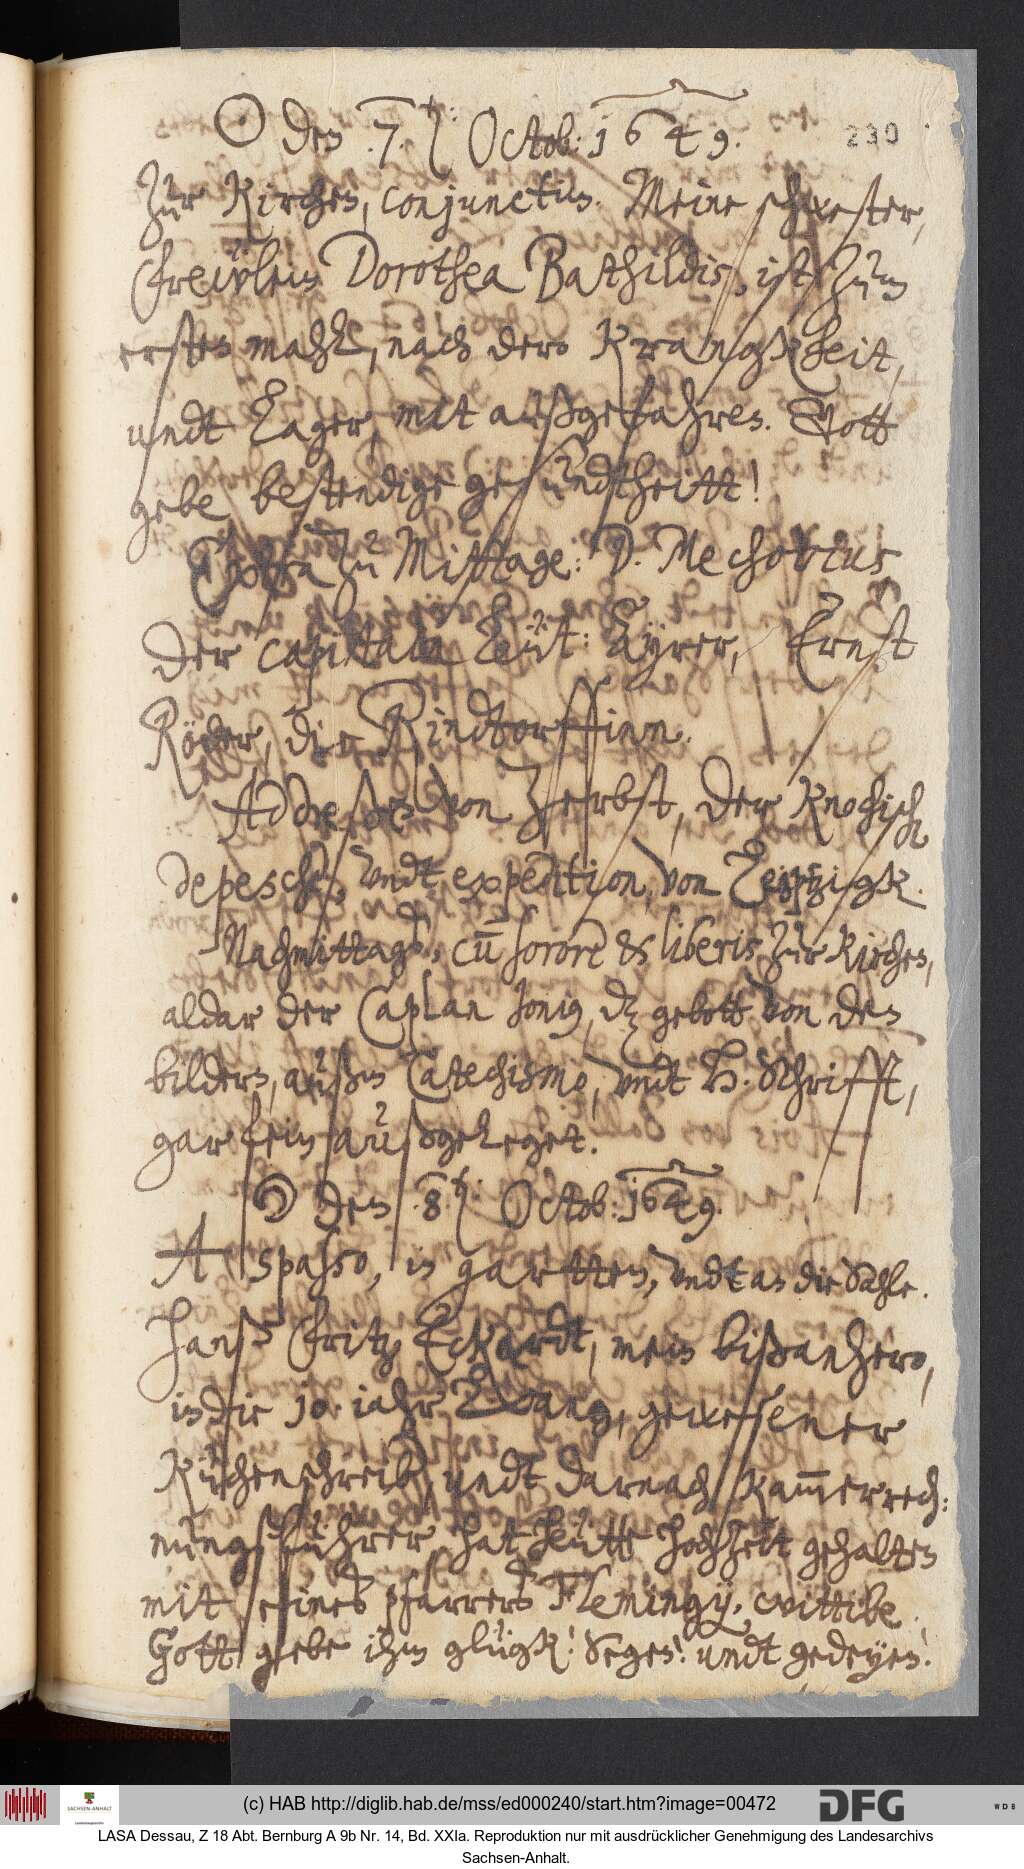 ☉ den 7. Octob: 1649.
230
Zur Kirchen, conjunctim. Meine schwester,
Freẅlein Dorothea Bathildis, ist zum
ersten mahl, nach dero Krangkheit,
undt Lager, mit außgefahren. Gott
gebe bestendige gesundtheitt!
Extra zu Mittage: D. Mechovius
der Capitain Leüt: Zÿrer, Ernst
Röder, die Rindtorffinn.
Addreßen von Zerbst, der Knochisch
depeschen, undt expedition, von Leiptzigk.
Nachmittags, cum sorore & liberis zur Kirchen,
aldar der Caplan Jonius, dz gebott von den
bildern, außm Catechismo, undt H. Schrifft,
gar fein außgeleget.
☽ den 8. Octob: 1649.
A spasso, in gartten, undt an die Sahle.
Hanß Fritz Eckardt, mein bißanhero,
in die 10. iahr lang, gewesener
Küchenschreiber, undt darnach Kammerrech:
nungsführer hat heütte hochzeit gehalten
mit seines pfarrers Flemingij, wittibe.
Gott gebe ihm glügk! Segen! undt gedeyen.
(c) HAB http://diglib.hab.de/mss/ed000240/start.htm?image=00472
SACHSEN-ANHALT
DFG
WDB
LASA Dessau, Z 18 Abt. Bernburg A 9b Nr. 14, Bd. XXIa. Reproduktion nur mit ausdrücklicher Genehmigung des Landesarchivs
Sachsen-Anhalt.